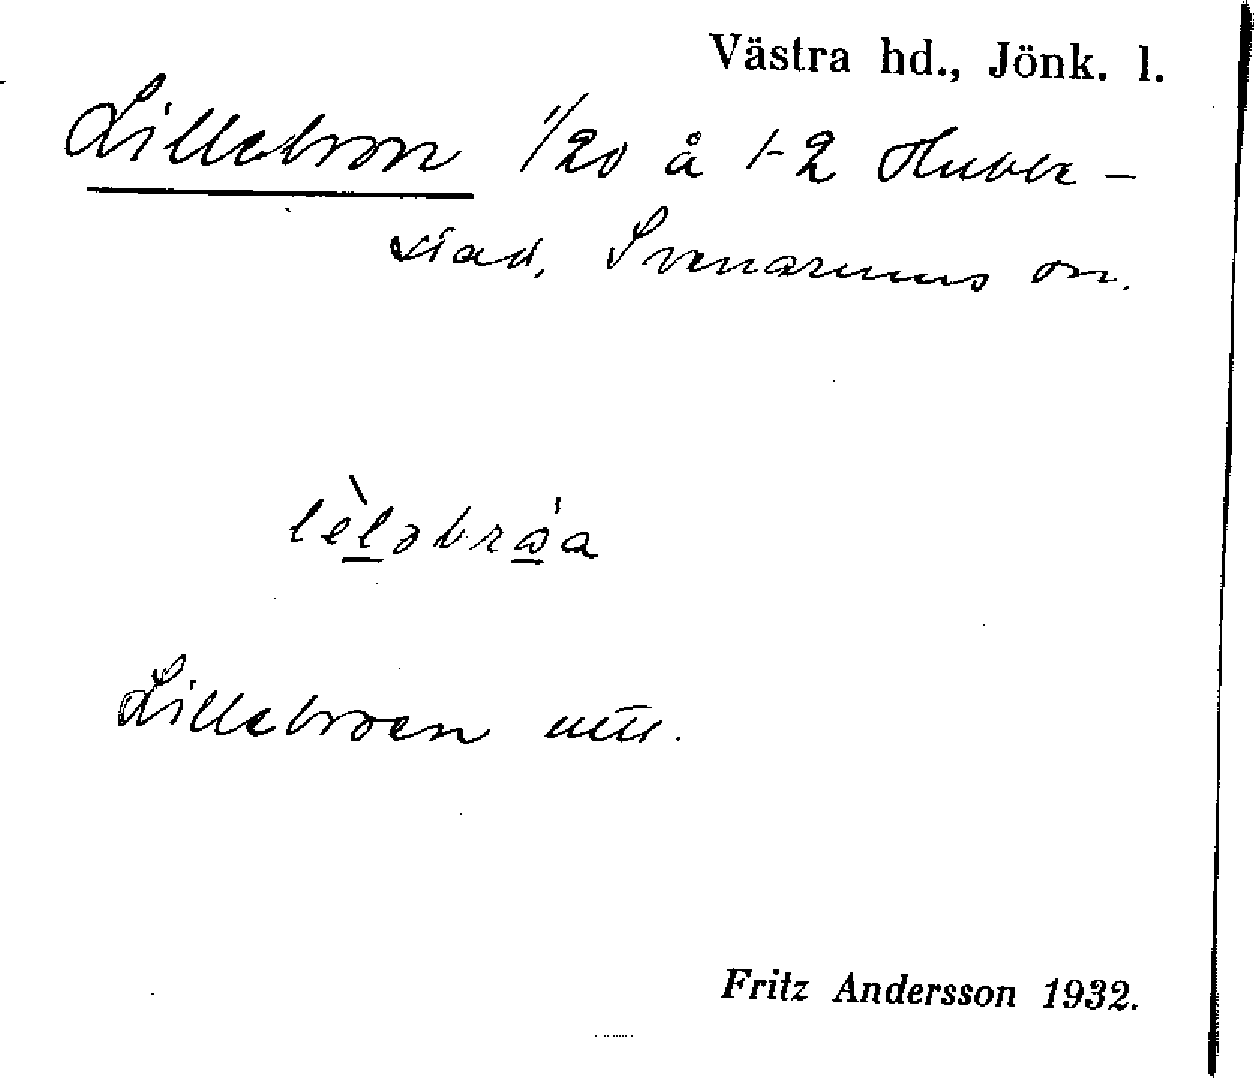 Västra hd., Jönk. l.
Lillebron 1/20 å 1-2 Hubbe-
stad, Svenarums sn.
lèləbrɷ́a
Lillebroen
Fritz Andersson 1932.